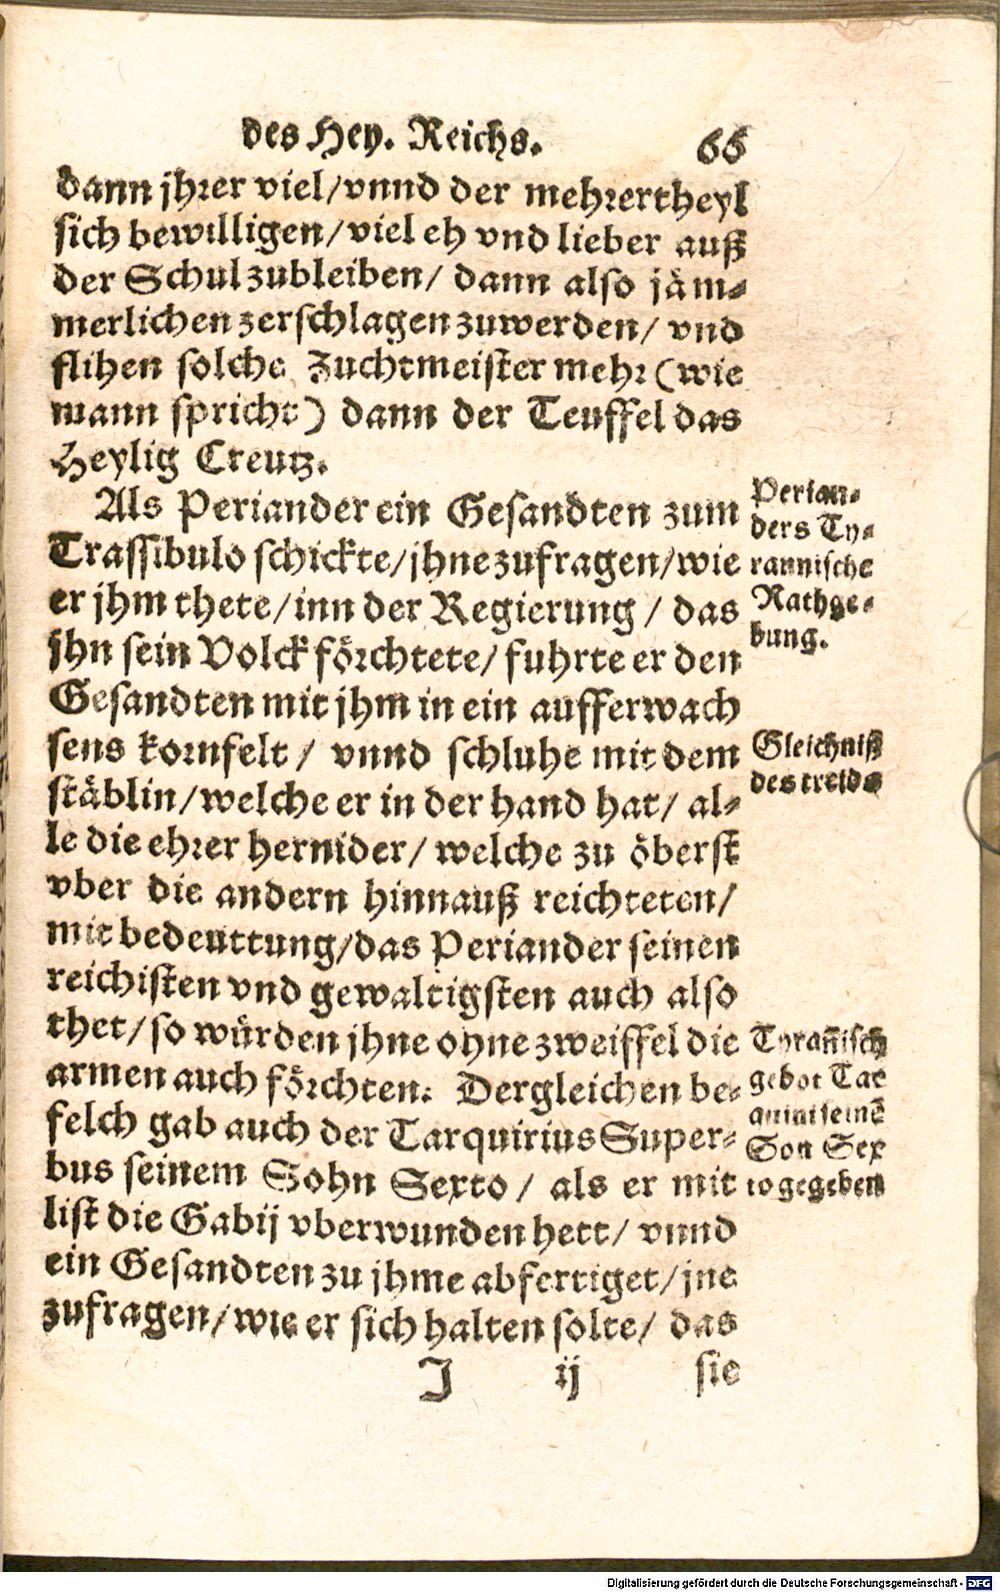 des Hey. Reichs.
66
dann jhrer viel/vnnd der mehrertheyl
sich bewilligen/viel eh vnd lieber auß
der Schul zubleiben/ dann also jäm-
merlichen zerschlagen zuwerden/ vnd
flihen solche Zuchtmeister mehr (wie
mann spricht) dann der Teuffel das
Heylig Creutz.
Als Periander ein Gesandten zum
Trassibulo schickte/jhne zufragen/wie
er jhm thete/inn der Regierung / das
jhn sein Volck förchtete/ fuhrte er den
Gesandten mit jhm in ein aufferwach
sens kornfelt / vnnd schluhe mit dem
stäblin/welche er in der hand hat/ al-
le die ehrer hernider/ welche zu öberst
vber die andern hinnauß reichteten/
mit bedeuttung/das Periander seinen
reichisten vnd gewaltigsten auch also
thet/so würden jhne ohne zweiffel die
armen auch förchten. Dergleichen be-
felch gab auch der Tarquirius Super-
bus seinem Sohn Sexto / als er mit
list die Gabij vberwunden hett/ vnnd
ein Gesandten zu jhme abfertiget/jne
zufragen/wie er sich halten solte/ das
J ij sie
Perian-
ders Ty-
rannische
Rathge-
bung.
Gleichniß
des treids
Tyrañisch
gebot Tar
quini seinē
Son Sex
to gegeben
Digitalisierung gefördert durch die Deutsche Forschungsgemeinschaft - DFG